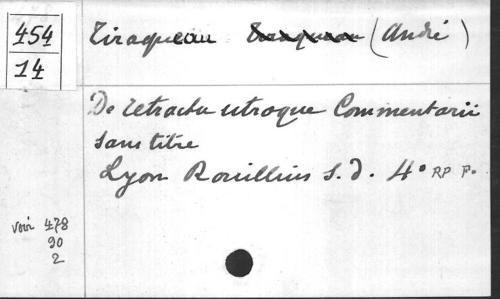 454
14
Tiraqueau (André)
De retractu utroque Commentarii
sans titre
Lyon Rouillius s. d. 4° RP F.
voir 478
90
2